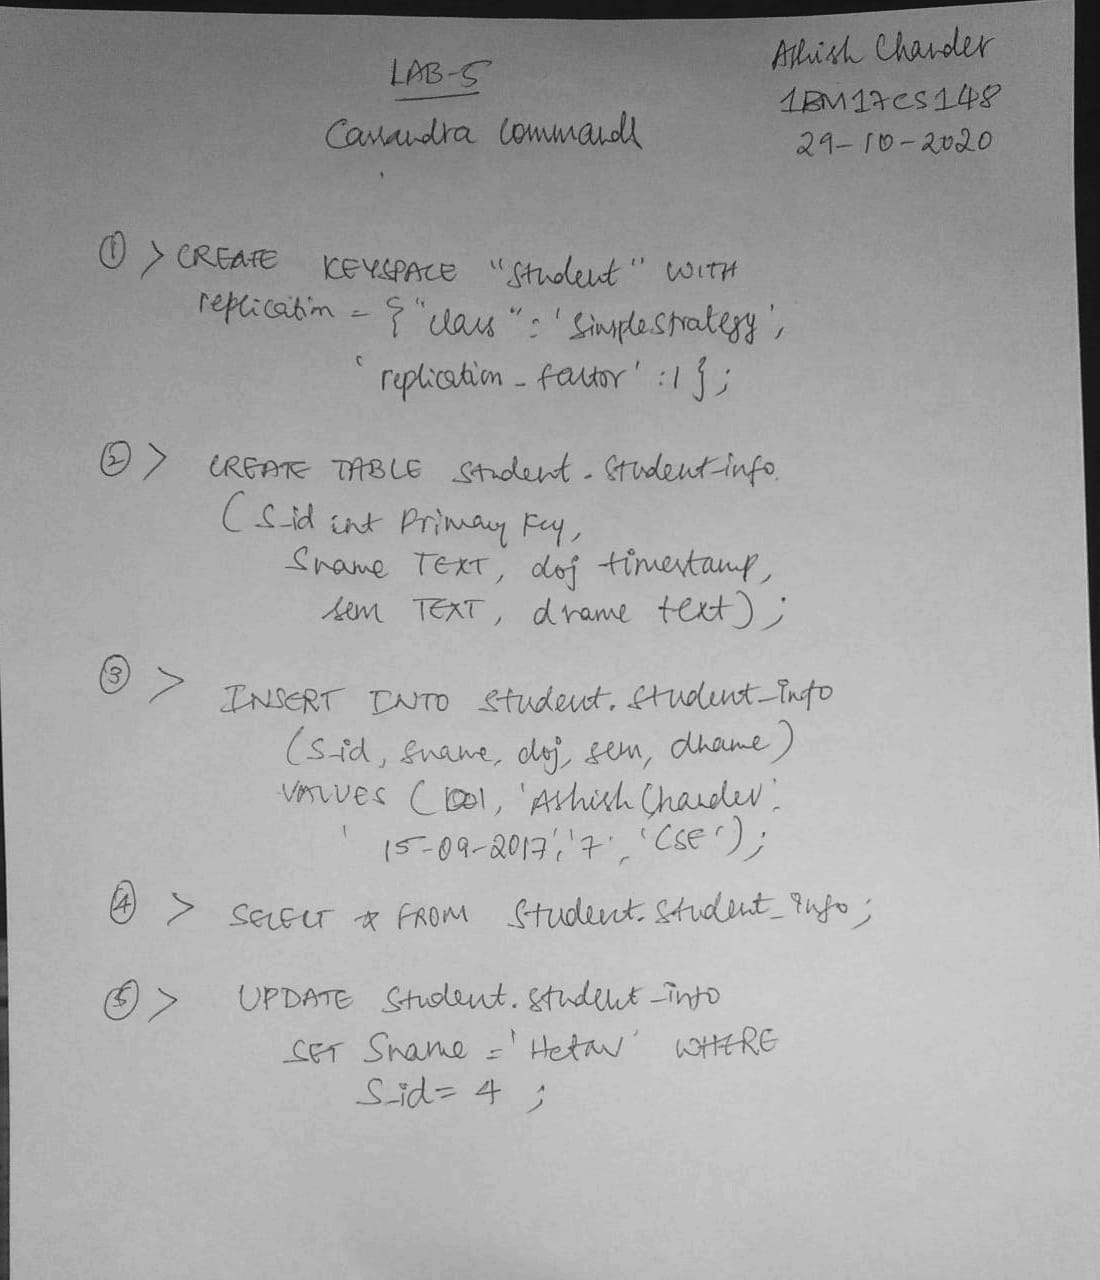 LAB-5
Ashish Chander
1BM17CS148
Cassandra Commands
29-10-2020
① > CREATE KEYSPACE "Student" WITH
replication = { "class" : 'SimpleStrategy',
'replication_factor' : 1 };
② > CREATE TABLE Student.Student_info
(S_id int Primary Key,
Sname TEXT, doj timestamp,
sem TEXT, dname text);
③ > INSERT INTO Student.Student_info
(S_id, Sname, doj, sem, dname)
VALUES (1001, 'Ashish Chander',
'15-09-2017', '7', 'CSE');
④ > SELECT * FROM Student.Student_info;
⑤ > UPDATE Student.Student_info
SET Sname = 'Hetav' WHERE
S_id = 4 ;